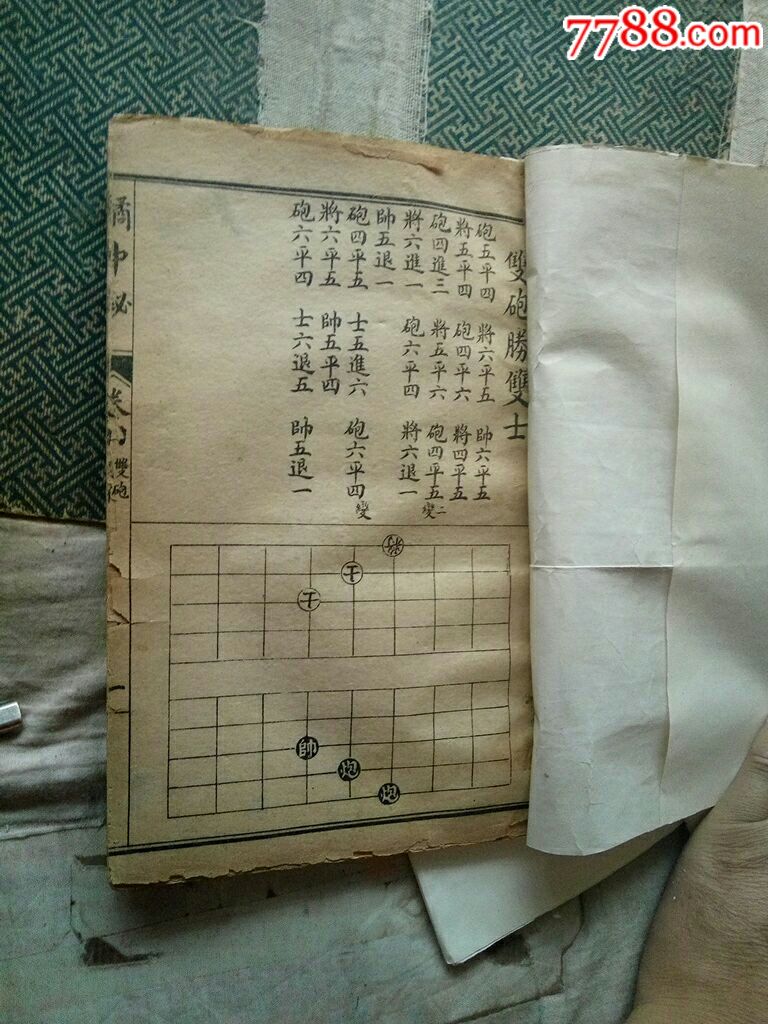 7788.com
雙砲勝雙士
砲五平四 將六平五 帥六平五
將五平四 砲四平六 將四平五
砲四進三 將五平六 砲四平五 二變
將六進一 砲六平四 將六退一
帥五退一
砲四平五 士五進六 砲六平四 變
將六平五 帥五平四
砲六平四 士六退五 帥五退一
橘中秘
卷四
雙砲
將
士
士
帥
炮
炮